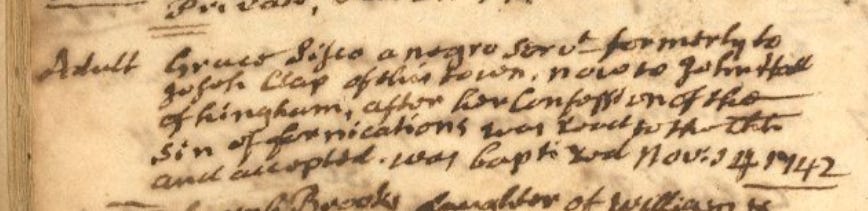 Private,
Adult Grace Sisco a negro servt formerly to
Joseph Clap of this town, now to John Hall
of hingham, after her Confession of the
sin of fornications was read to the Chh
and accepted. was baptized Nov. 14 1742
Brooks daughter of William